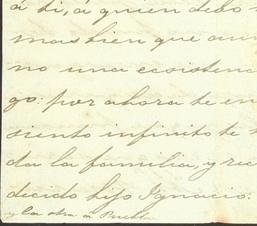 á ti, á quien debo
mas bien que aun
no una ecsistenc
go: por ahora te en
siento infinito te
da la familia, y rec
decido hijo Ygnacio.
y la otra á Puebla